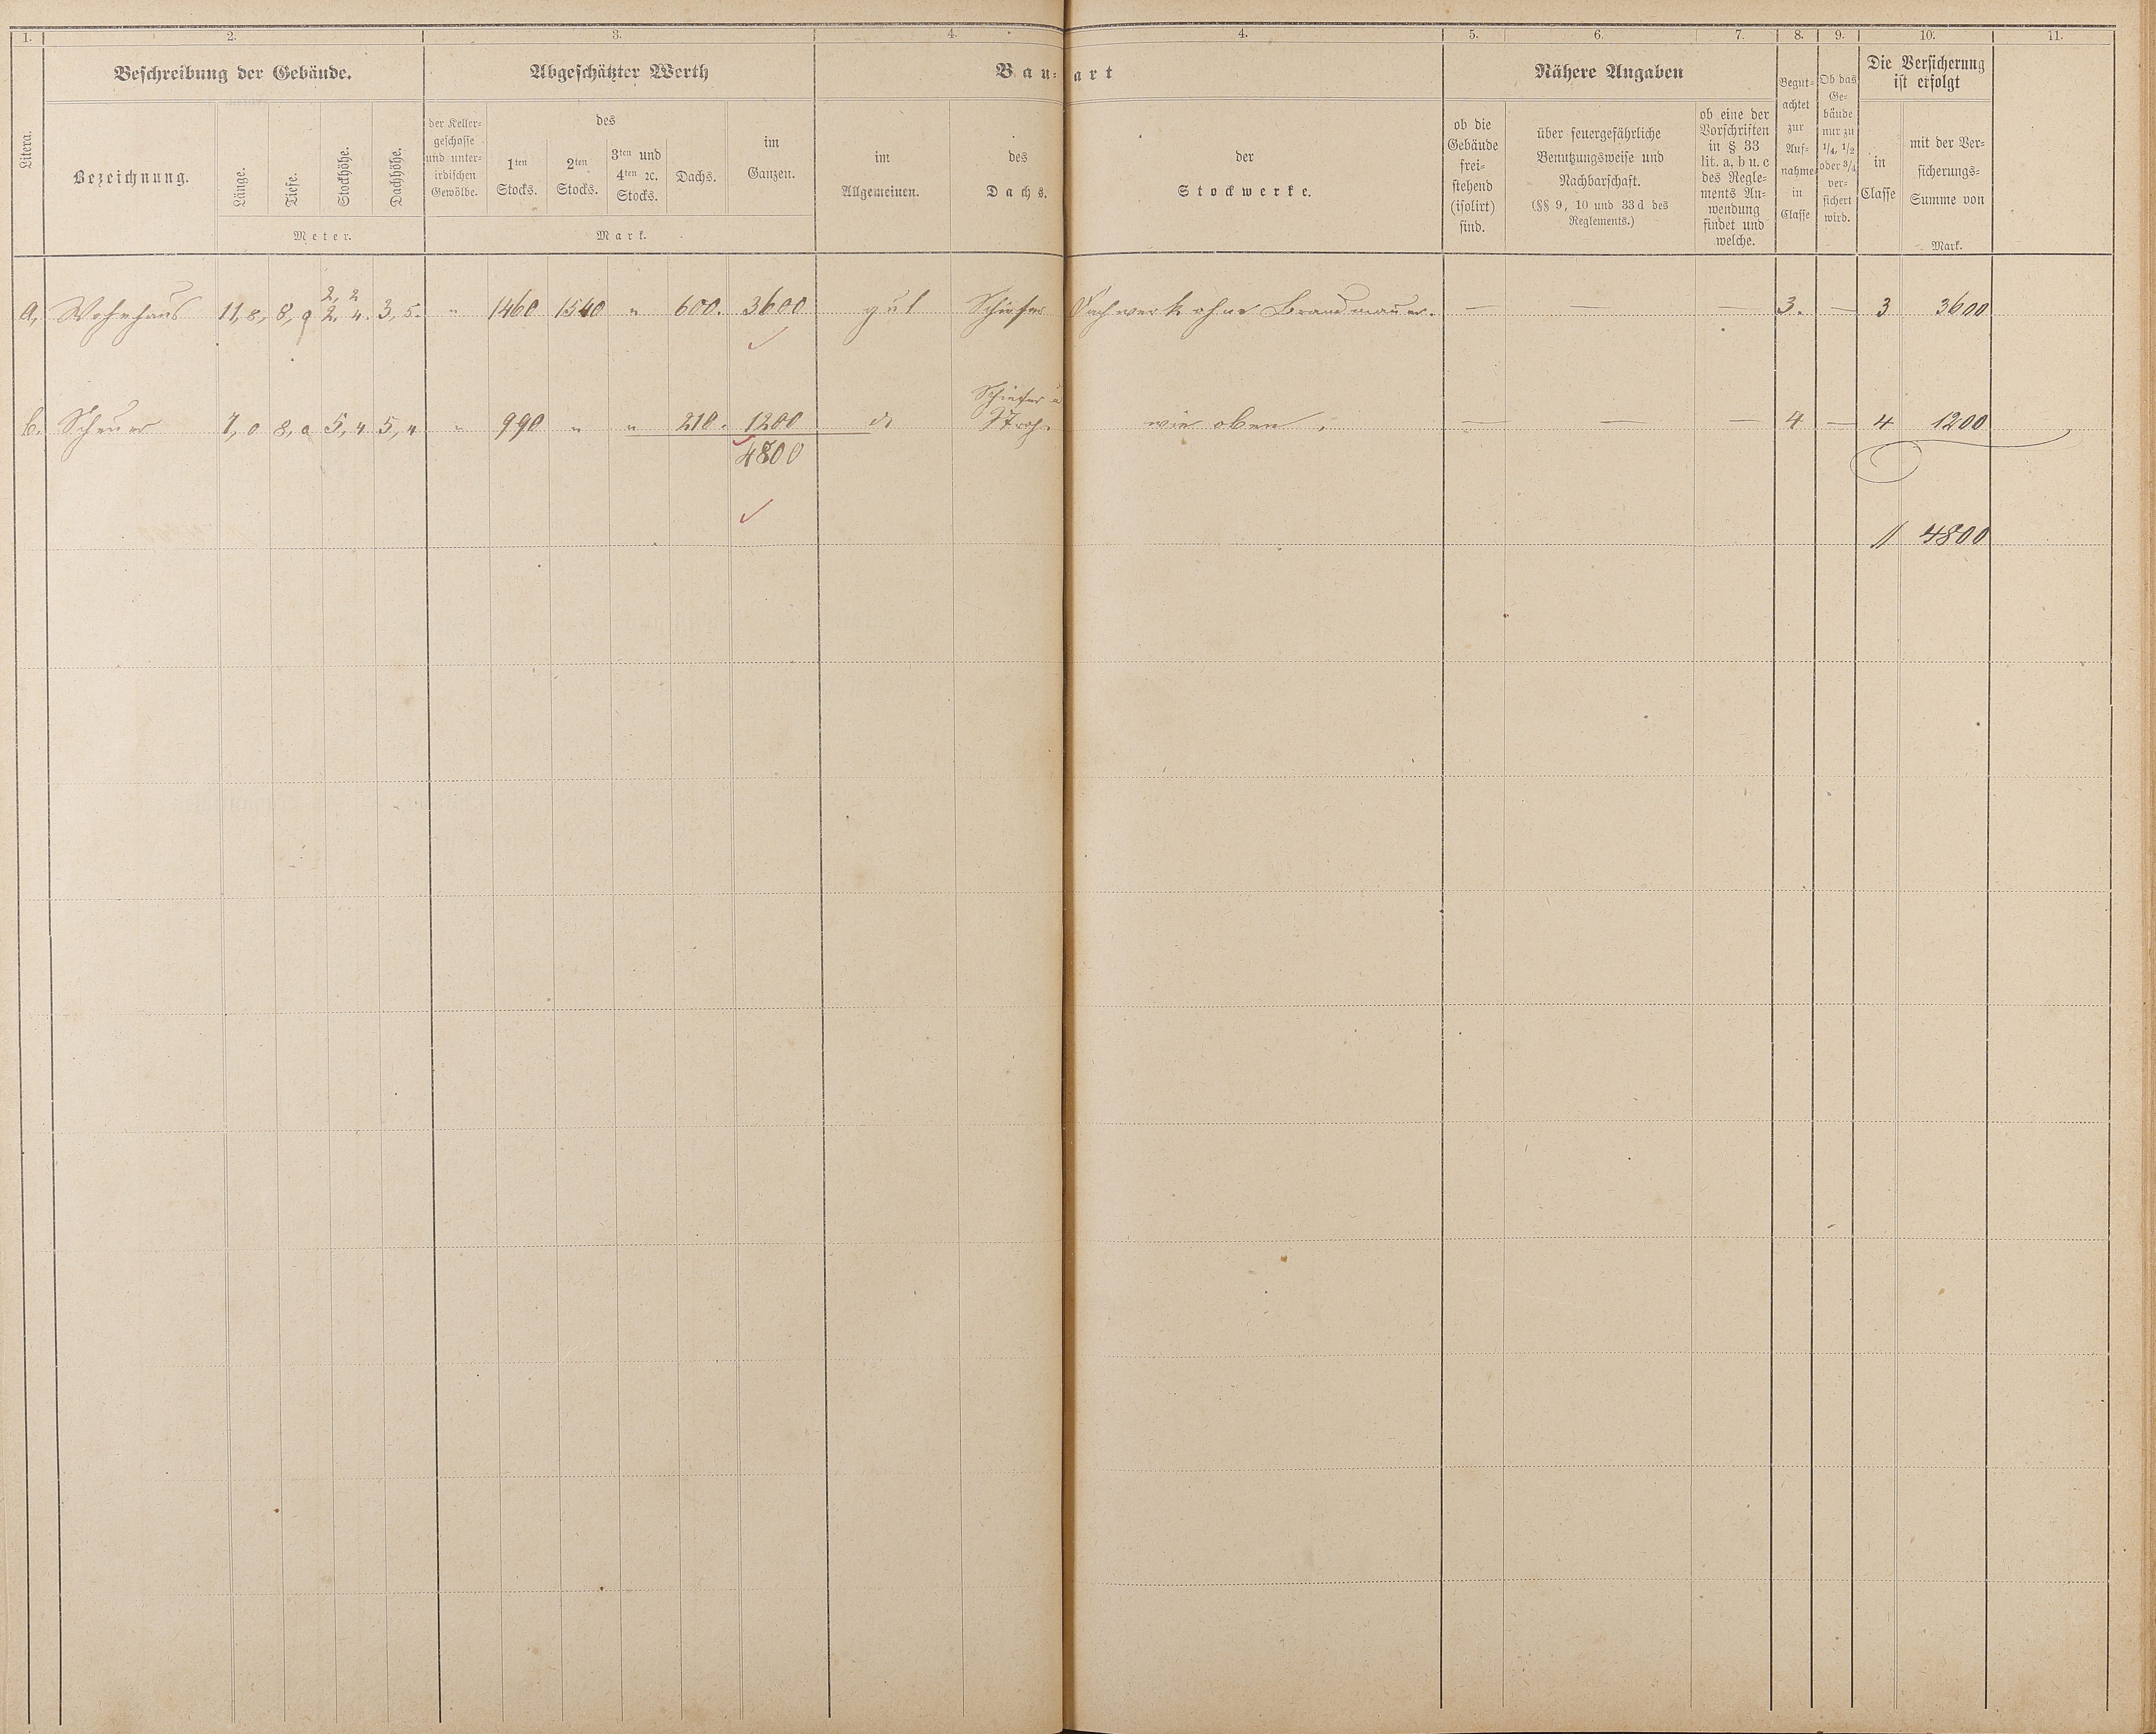 1. 2. 3. 4. 4. 5. 6. 7. 8. 9. 10. 11.
Beschreibung der Gebäude. Abgeschätzter Werth Bau- art Nähere Angaben Die Versicherung
ist erfolgt
Litera.
Bezeichnung.
Länge.
Tiefe.
Stockhöhe.
Dachhöhe.
Meter.
der Keller-
geschosse
und unter-
irdischen
Gewölbe.
des
1ten
Stocks.
2ten
Stocks.
3ten und
4ten ꝛc.
Stocks.
Dachs.
im
Ganzen.
Mark.
im
Allgemeinen.
des
Dachs.
der
Stockwerke.
ob die
Gebäude
frei-
stehend
(isolirt)
sind.
über feuergefährliche
Benutzungsweise und
Nachbarschaft.
(§§ 9, 10 und 33 d des
Reglements.)
ob eine der
Vorschriften
in § 33
lit. a, b u. c
des Regle-
ments An-
wendung
findet und
welche.
Begut-
achtet
zur
Auf-
nahme
in
Classe
Ob das
Ge-
bäude
nur zu
1/4, 1/2
oder 3/4
ver-
sichert
wird.
in
Classe
mit der Ver-
sicherungs-
Summe von
Mark.
2, 2
a, Wohnhaus 11, 8, 8, 9 2, 4. 3, 5. " 1460 1540 " 600. 3600 gut Schiefer Fachwerk ohne Brandmauer. — — — 3. — 3 3600
Schiefer u
b. Scheuer 7, 0 8, 0 5, 4 5, 4 " 990 " " 210. 1200 Stroh wie oben. — — — 4 — 4 1200
4800
// 4800